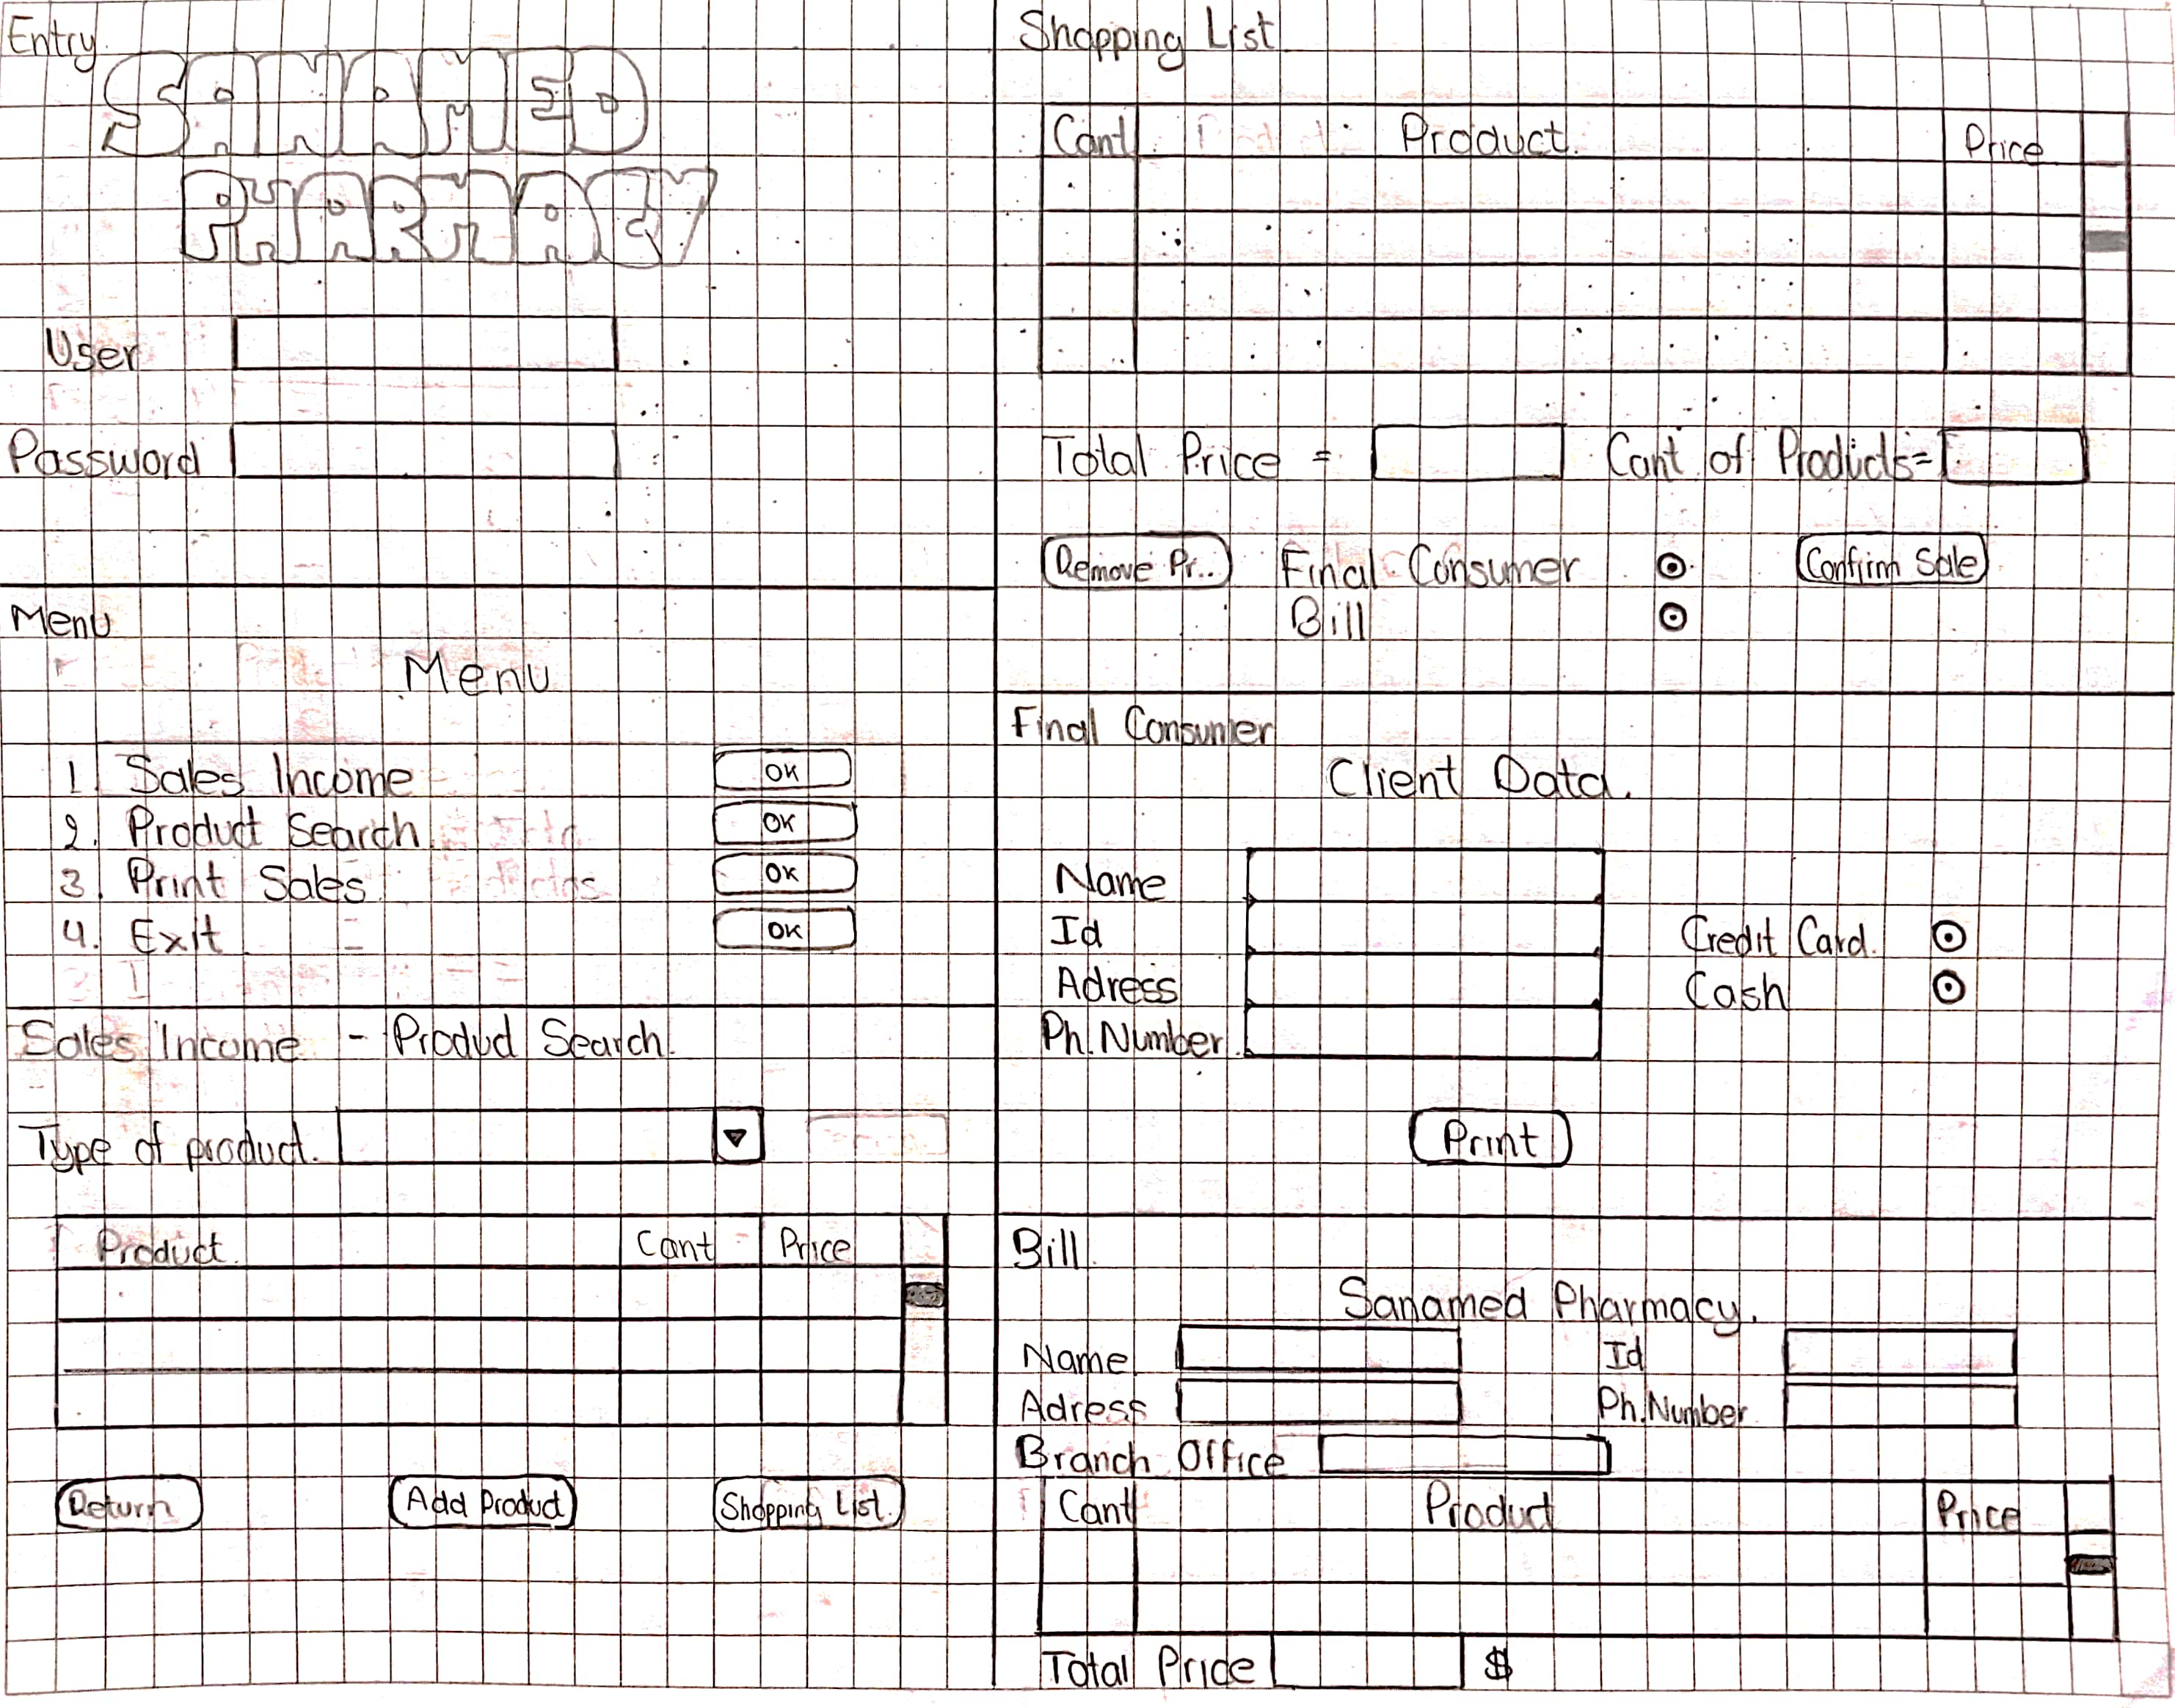 Entry
SANAMED
PHARMACY
User
Password
Menu
Menu
1. Sales Income OK
2. Product Search OK
3. Print Sales OK
4. Exit OK
Sales Income - Product Search.
Type of product.
Product Cant Price
Return Add Product Shopping List
Shopping List
Cant Product Price
Total Price = Cant of Products=
Remove Pr.. Final Consumer Confirm Sale
Bill
Final Consumer
Client Data.
Name
Id Credit Card
Adress Cash
Ph. Number
Print
Bill
Sanamed Pharmacy.
Name Id
Adress Ph. Number
Branch Office
Cant Product Price
Total Price $